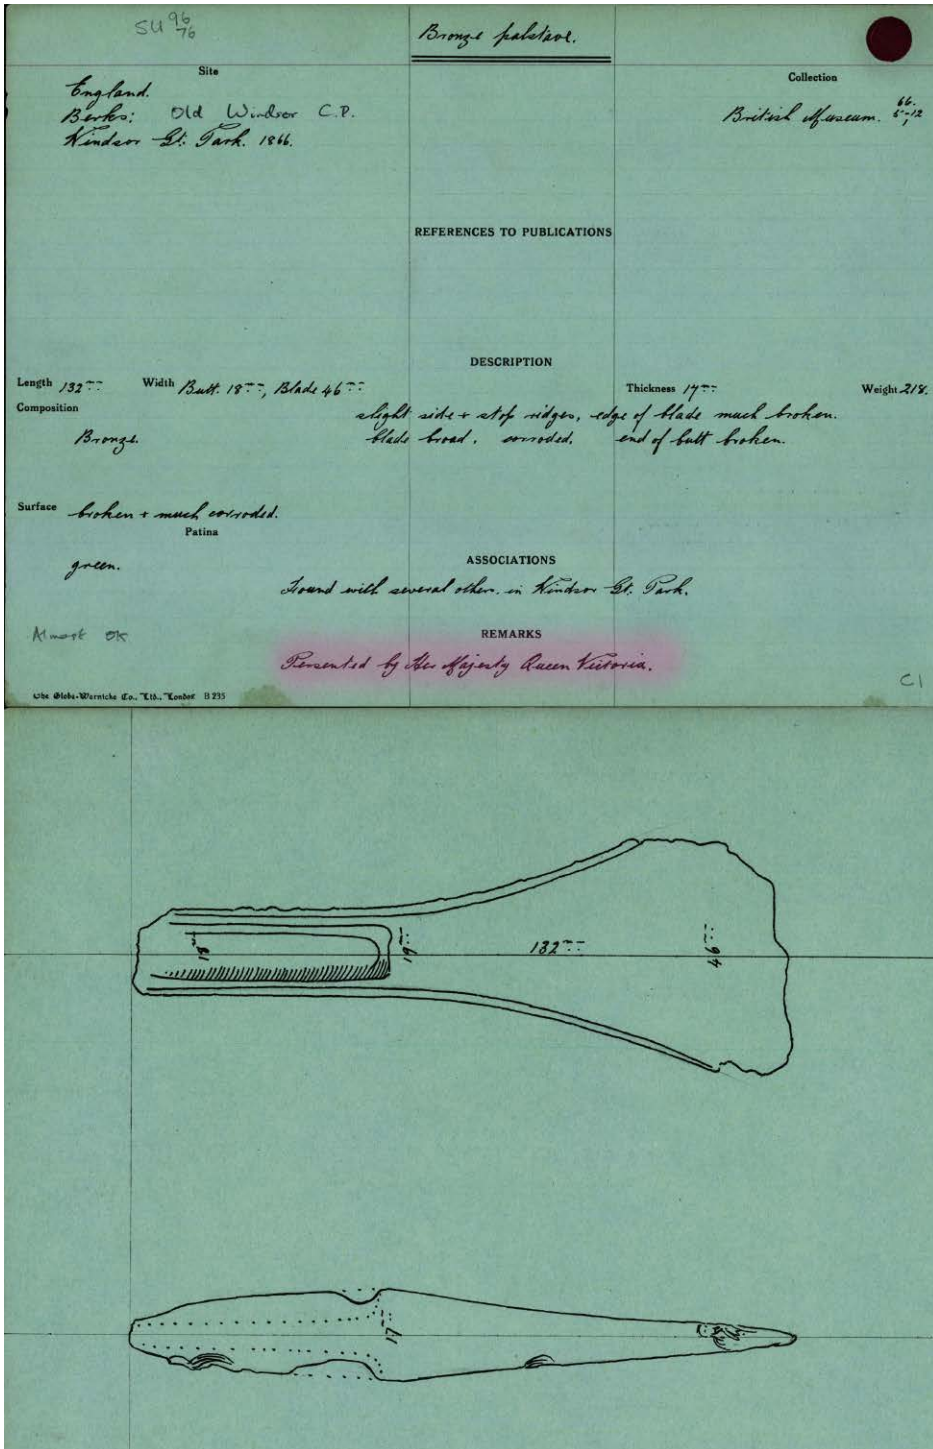 SU 96
76
Bronze palstave.
Site
England.
Berks: Old Windsor C.P.
Windsor Gt. Park. 1866.
Collection
British Museum. 66.
5-12
1
REFERENCES TO PUBLICATIONS
DESCRIPTION
Length 132mm Width Butt. 18mm, Blade 46mm Thickness 17mm Weight 218.
Composition slight side + stop ridges, edge of blade much broken.
Bronze. blade broad. corroded. end of butt broken.
Surface broken + much corroded.
Patina
green.
ASSOCIATIONS
Found with several others. in Windsor Gt. Park.
Almost OK
REMARKS
Presented by Her Majesty Queen Victoria.
C1
The Globe-Wernicke Co., Ltd., London B 235
18
19mm
132mm
46mm
17mm